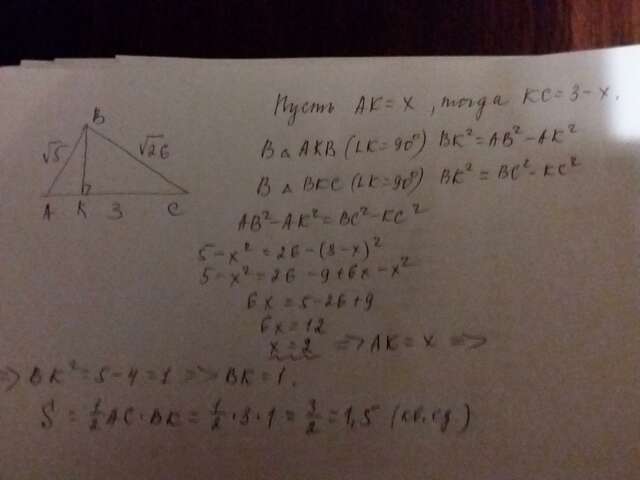 B
√5
√26
A
K
3
C
Пусть AK=x, тогда KC=3-x.
В △ AKB (∠K=90°) BK²=AB²-AK²
В △ BKC (∠K=90°) BK²=BC²-KC²
AB²-AK²=BC²-KC²
5-x²=26-(3-x)²
5-x²=26-9+6x-x²
6x=5-26+9
6x=12
x=2 => AK=x =>
=> BK²=5-4=1 => BK=1.
S=1/2 AC·BK=1/2·3·1=3/2=1,5 (кв.ед.)